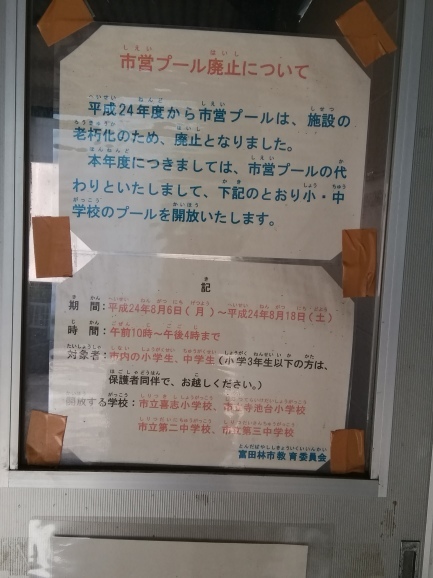 市営プール廃止について
平成24年度から市営プールは、施設の
老朽化のため、廃止となりました。
本年度につきましては、市営プールの代
わりといたしまして、下記のとおり小・中
学校のプールを開放いたします。
記
期間：平成24年8月6日(月)～平成24年8月18日(土)
時間：午前10時～午後4時まで
対象者：市内の小学生、中学生(小学3年生以下の方は、
保護者同伴で、お越しください。)
開放する学校：市立喜志小学校、市立寺池台小学校
市立第二中学校、市立第三中学校
富田林市教育委員会